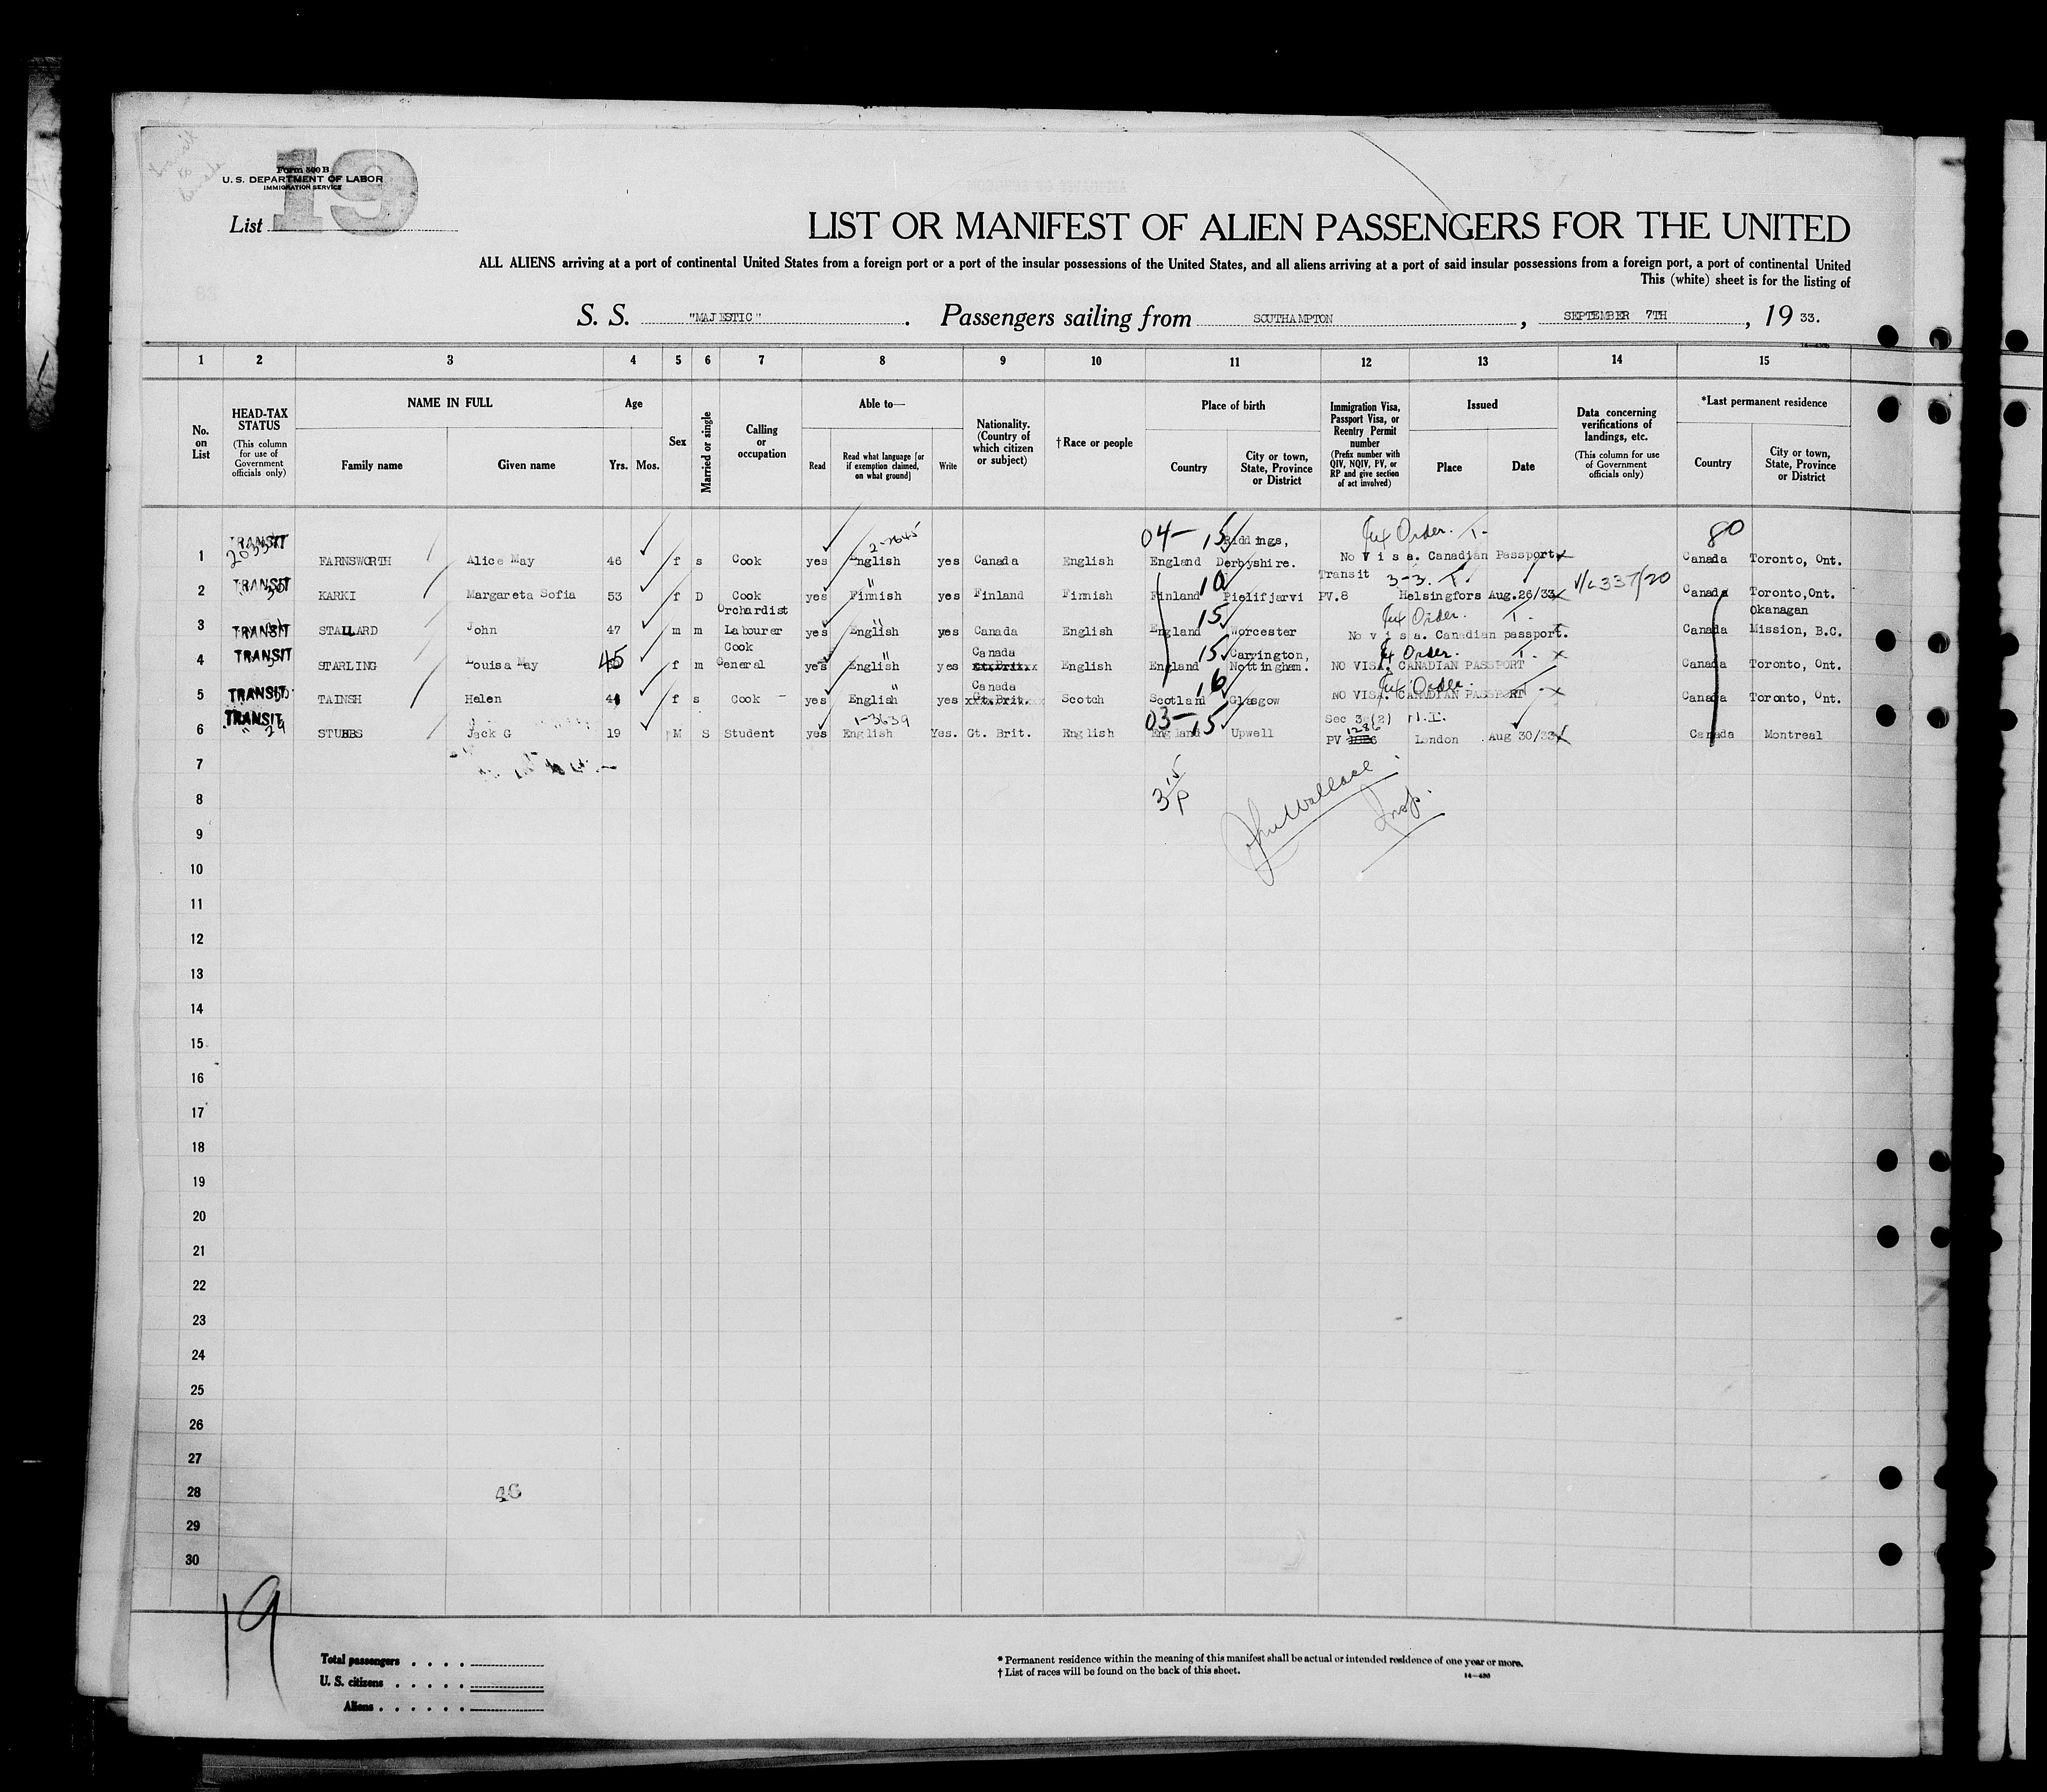 19
Form 500 B
U. S. DEPARTMENT OF LABOR
IMMIGRATION SERVICE
List
LIST OR MANIFEST OF ALIEN PASSENGERS FOR THE UNITED
ALL ALIENS arriving at a port of continental United States from a foreign port or a port of the insular possessions of the United States, and all aliens arriving at a port of said insular possessions from a foreign port, a port of continental United
This (white) sheet is for the listing of
S. S. "MAJESTIC". Passengers sailing from SOUTHAMPTON, SEPTEMBER 7TH, 19 33.
1 2 3 4 5 6 7 8 9 10 11 12 13 14 15
No. on List
HEAD-TAX STATUS (This column for use of Government officials only)
NAME IN FULL Family name Given name
Age Yrs. Mos.
Sex
Married or single
Calling or occupation
Able to— Read Read what language [or if exemption claimed, on what ground] Write
Nationality. (Country of which citizen or subject)
†Race or people
Place of birth Country City or town, State, Province or District
Immigration Visa, Passport Visa, or Reentry Permit number (Prefix number with QIV, NQIV, PV, or RP and give section of act involved)
Issued Place Date
Data concerning verifications of landings, etc. (This column for use of Government officials only)
*Last permanent residence Country City or town, State, Province or District
TRANSIT 2-7645 04- 15 Riddings, Ex Order. T. 80
1 FARNSWORTH Alice May 46 f s Cook yes English yes Canada English England Derbyshire. No Visa. Canadian Passport. Canada Toronto, Ont.
TRANSIT " 10 Transit 3-3. T. V/L337/20
2 KARKI Margareta Sofia 53 f D Cook yes Finnish yes Finland Finnish Finland Pielifjarvi PV.8 Helsingfors Aug.26/33 Canada Toronto,Ont.
Orchardist 15 Ex Order. T. Okanagan
3 TRANSIT STALLARD John 47 m m Labourer yes English yes Canada English England Worcester No visa. Canadian passport. Canada Mission, B.C.
TRANSIT Cook " Canada 15 Carrington, Ex Order. T.
4 STARLING Louisa May 45 f m General yes English yes Gt.Brit. English England Nottingham. NO VISA. CANADIAN PASSPORT Canada Toronto, Ont.
TRANSIT " Canada 16 Ex Order.
5 TAINSH Helen 44 f s Cook yes English yes Gt.Brit. Scotch Scotland Glasgow NO VISA. CANADIAN PASSPORT Canada Toronto, Ont.
TRANSIT 1-3639 03- 15 Sec 3 (2) 1286
6 " 29 STUBBS Jack G 19 M S Student yes English Yes. Gt. Brit. English England Upwell PV London Aug 30/33 Canada Montreal
7
8
Wallace
Insp.
9
10
11
12
13
14
15
16
17
18
19
20
21
22
23
24
25
26
27
28
29
30
19
Total passengers
U. S. citizens
Aliens
* Permanent residence within the meaning of this manifest shall be actual or intended residence of one year or more.
† List of races will be found on the back of this sheet.